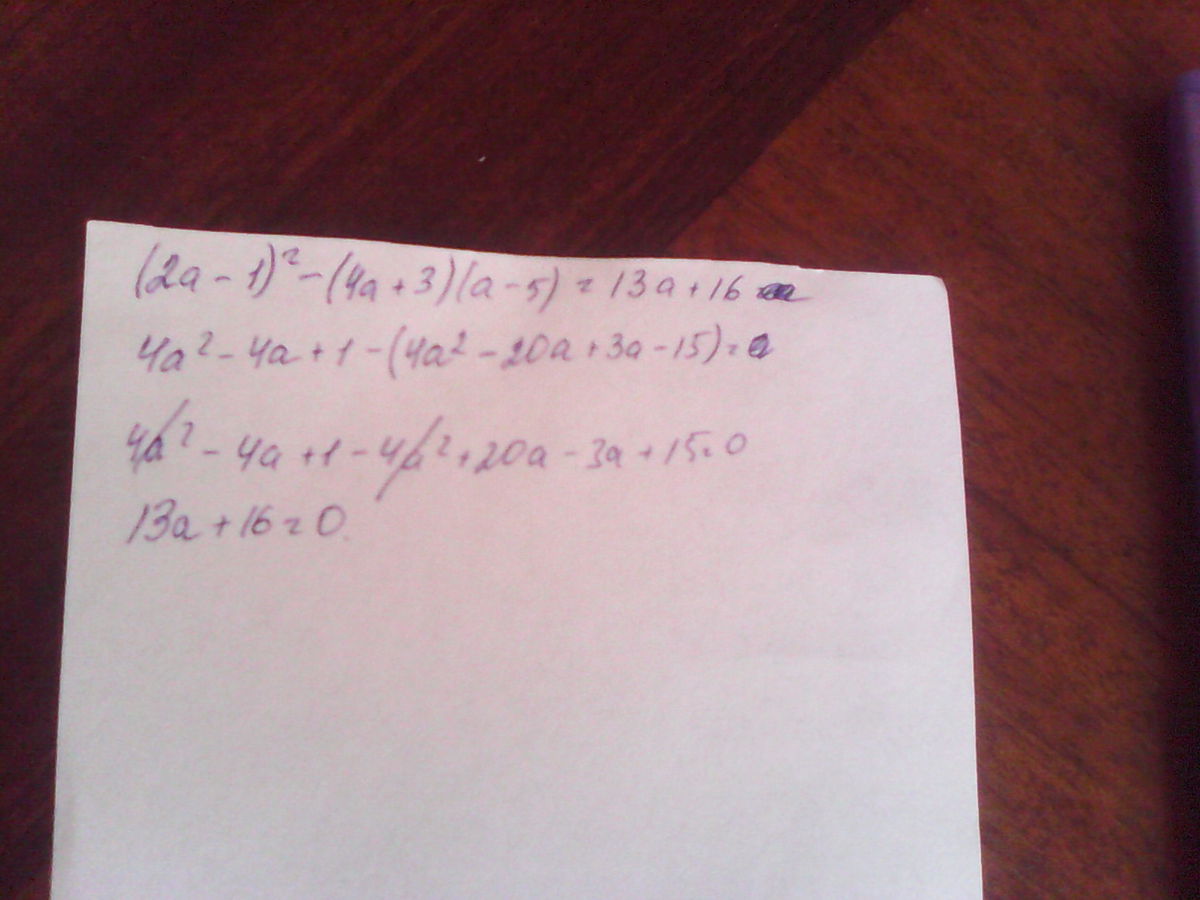 (2a - 1)² - (4a + 3)(a - 5) = 13a + 16
4a² - 4a + 1 - (4a² - 20a + 3a - 15) =
4a² - 4a + 1 - 4a² + 20a - 3a + 15 = 0
13a + 16 = 0